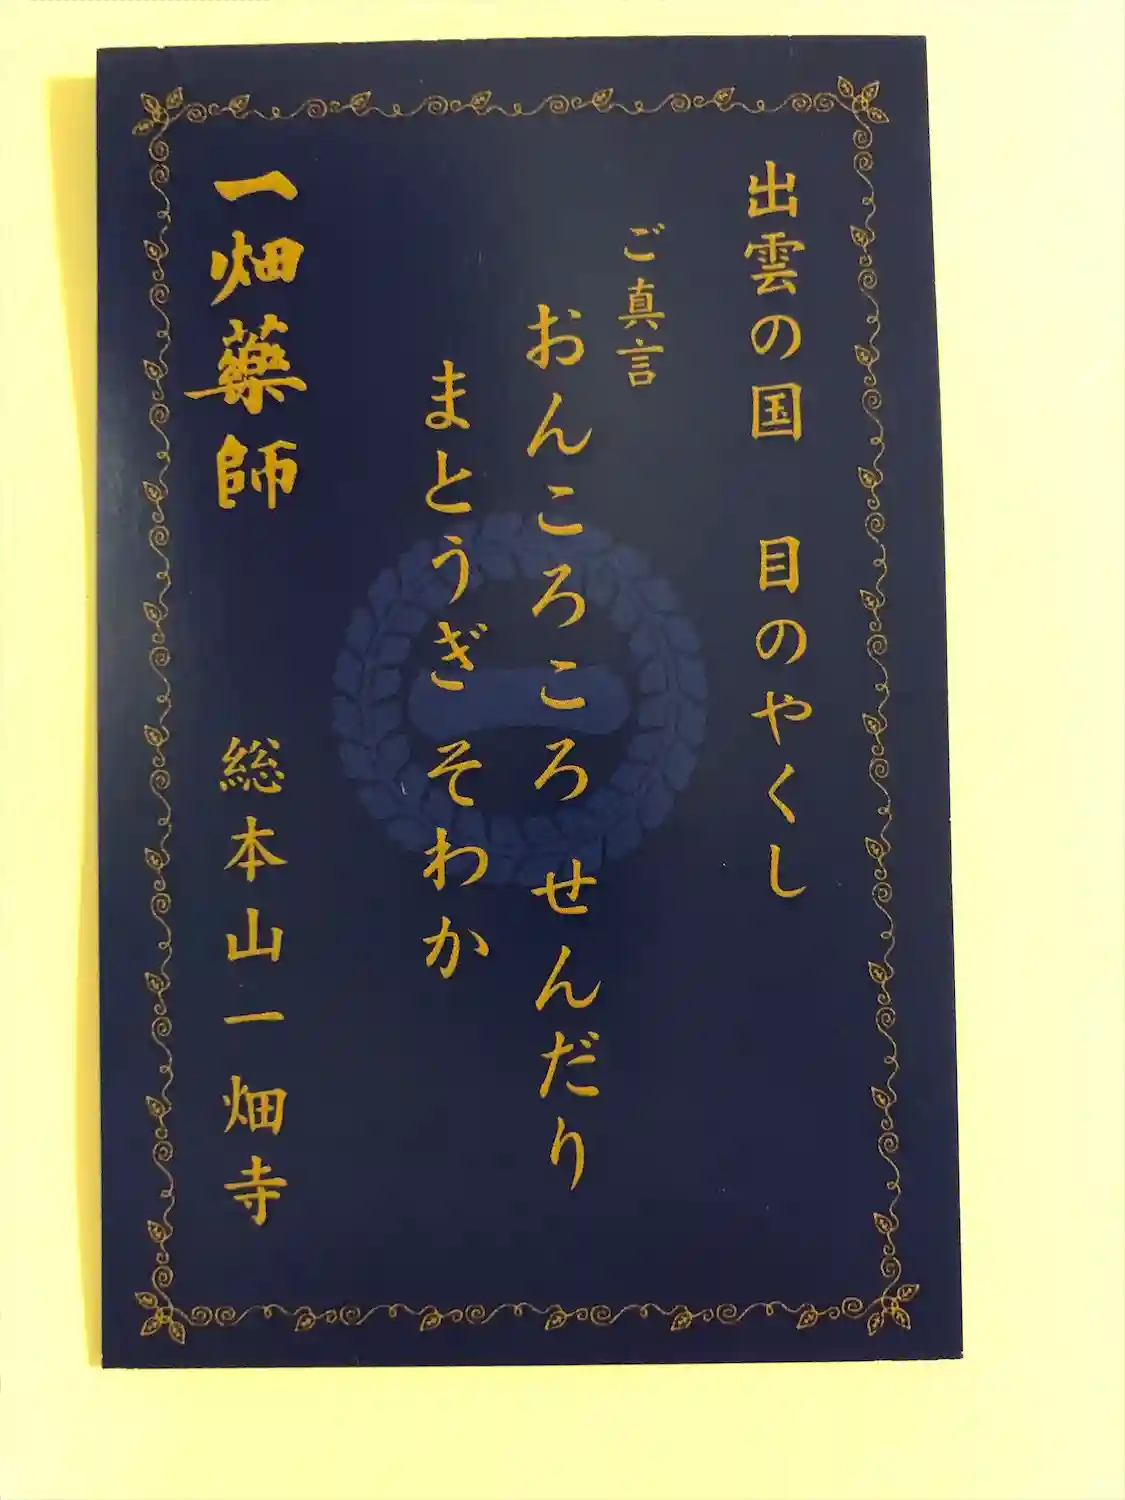 出雲の国　目のやくし
ご真言
おんころころ せんだり
まとうぎ そわか
一畑藥師　総本山一畑寺